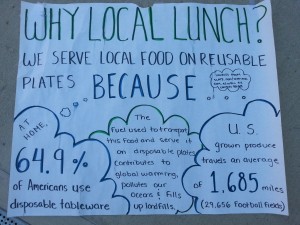 WHY LOCAL LUNCH?
WE SERVE LOCAL FOOD ON REUSABLE
PLATES BECAUSE...
AT
HOME,
64.9%
of Americans use
disposable tableware
The
fuel used to transport
this food and serve it
on disposable plates
contributes to
global warming,
pollutes our
oceans & fills
up landfills
U.S.
grown produce
travels an average
of 1,685 miles
(29,656 football fields)